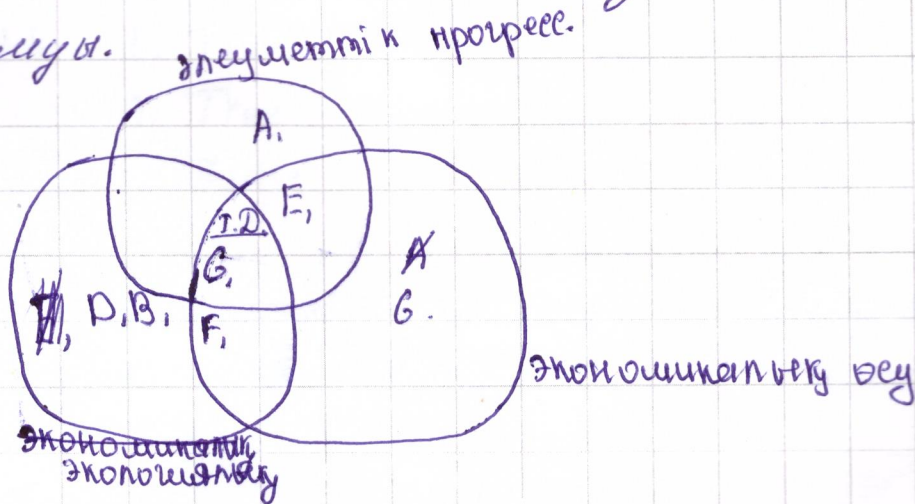 муы.
әлеуметтік прогресс.
A,
E,
I.D.
G,
A
D, B,
F,
6.
экономикалық өсу
экономикалық
экологиялық